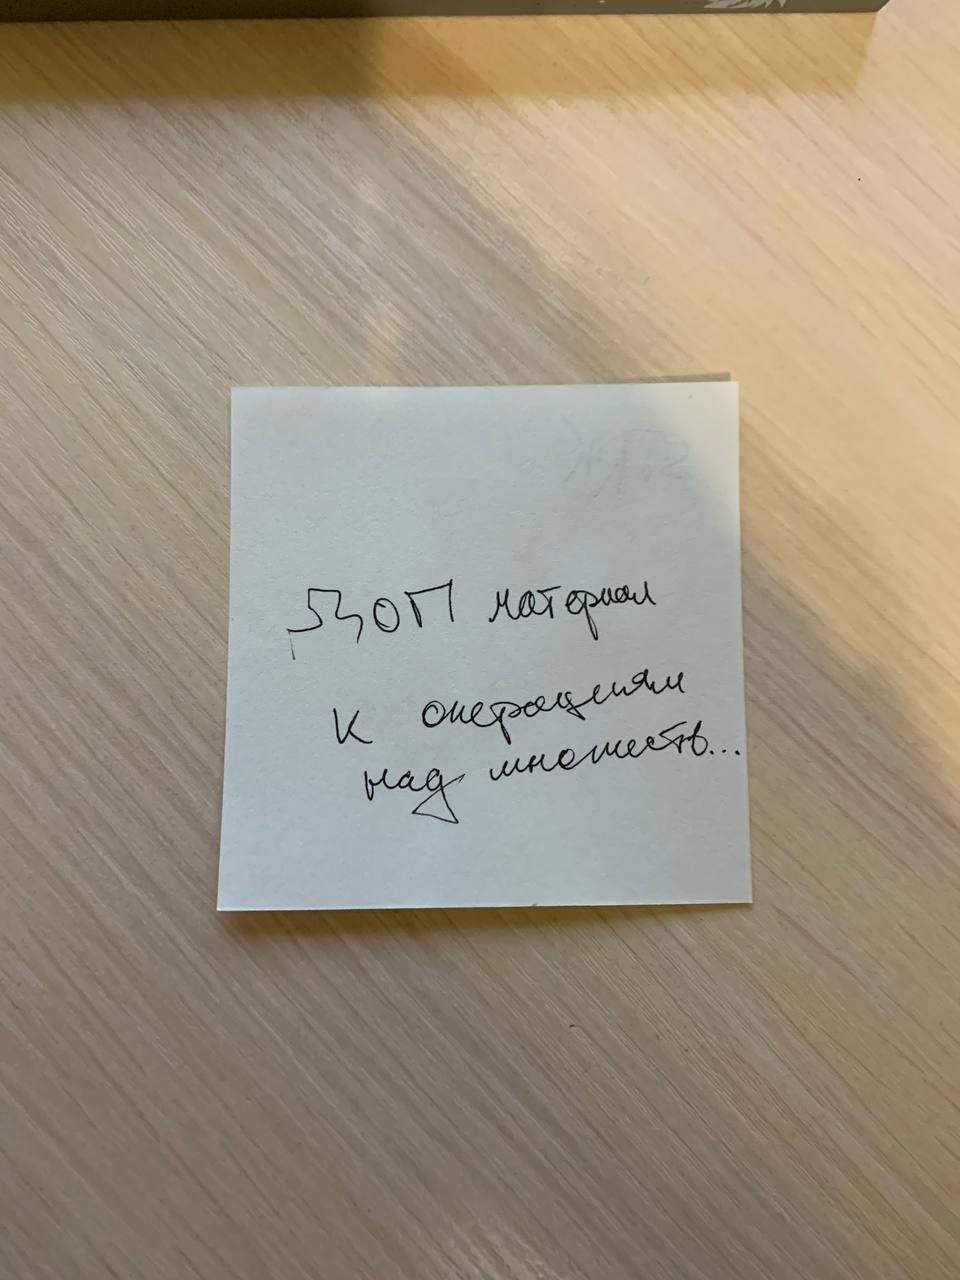 ДОП материал
к операциям
над множеств...